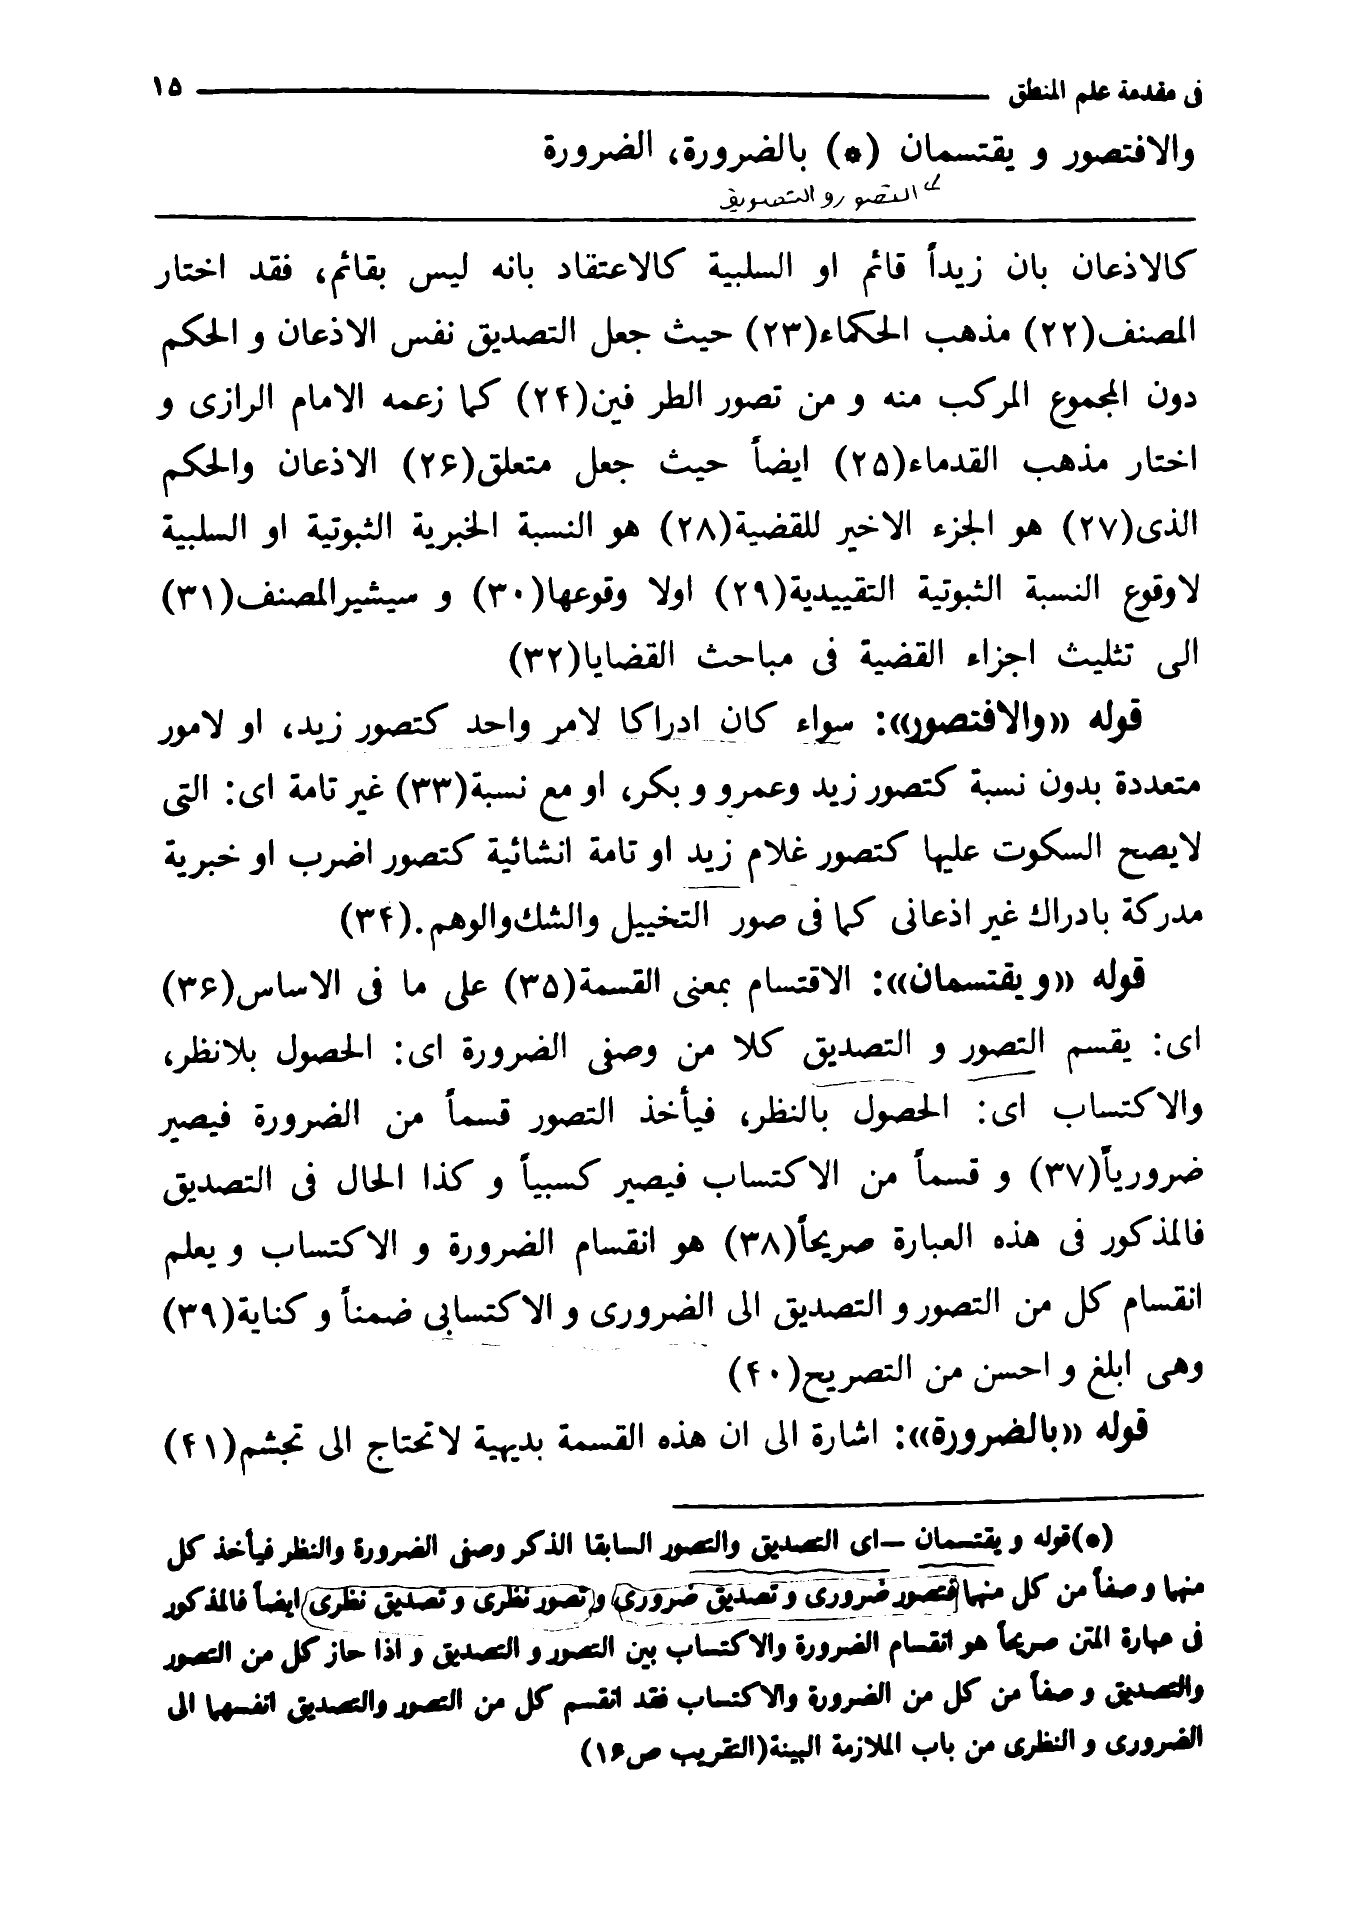 فى مقدمة علم المنطق ۱۵
والافتصور و يقتسمان (*) بالضرورة، الضرورة
التصور والتصديق
كالاذعان بان زيداً قائم او السلبية كالاعتقاد بانه ليس بقائم، فقد اختار
المصنف(۲۲) مذهب الحكماء(۲۳) حيث جعل التصديق نفس الاذعان و الحكم
دون المجموع المركب منه و من تصور الطر فين(۲۴) كما زعمه الامام الرازى و
اختار مذهب القدماء(۲۵) ايضاً حيث جعل متعلق(۲۶) الاذعان والحكم
الذى(۲۷) هو الجزء الاخير للقضية(۲۸) هو النسبة الخبرية الثبوتية او السلبية
لاوقوع النسبة الثبوتية التقييدية(۲۹) اولا وقوعها(۳۰) و سيشيرالمصنف(۳۱)
الى تثليث اجزاء القضية فى مباحث القضايا(۳۲)
قوله «والافتصور»: سواء كان ادراكا لامر واحد كتصور زيد، او لامور
متعددة بدون نسبة كتصور زيد وعمرو و بكر، او مع نسبة(۳۳) غير تامة اى: التى
لايصح السكوت عليها كتصور غلام زيد او تامة انشائية كتصور اضرب او خبرية
مدركة بادراك غير اذعانى كما فى صور التخييل والشك‌والوهم.(۳۴)
قوله «و يقتسمان»: الاقتسام بمعنى القسمة(۳۵) على ما فى الاساس(۳۶)
اى: يقسم التصور و التصديق كلا من وصفى الضرورة اى: الحصول بلانظر،
والاكتساب اى: الحصول بالنظر، فيأخذ التصور قسماً من الضرورة فيصير
ضرورياً(۳۷) و قسماً من الاكتساب فيصير كسبياً و كذا الحال فى التصديق
فالمذكور فى هذه العبارة صريحاً(۳۸) هو انقسام الضرورة و الاكتساب و يعلم
انقسام كل من التصور و التصديق الى الضرورى و الاكتسابى ضمناً و كناية(۳۹)
وهى ابلغ و احسن من التصريح(۴۰)
قوله «بالضرورة»: اشارة الى ان هذه القسمة بديهية لاتحتاج الى تجشم(۴۱)
(*)قوله و يقتسمان —اى التصديق والتصور السابقا الذكر وصفى الضرورة والنظر فيأخذ كل
منهما و صفاً من كل منهما فتصور ضرورى و تصديق ضرورى و تصور نظرى و تصديق نظرى ايضاً فالمذكور
فى عبارة المتن صريحاً هو انقسام الضرورة والاكتساب بين التصور و التصديق و اذا حاز كل من التصور
والتصديق و صفاً من كل من الضرورة والاكتساب فقد انقسم كل من التصور والتصديق انفسهما الى
الضرورى و النظرى من باب الملازمة البينة(التقريب ص۱۶)